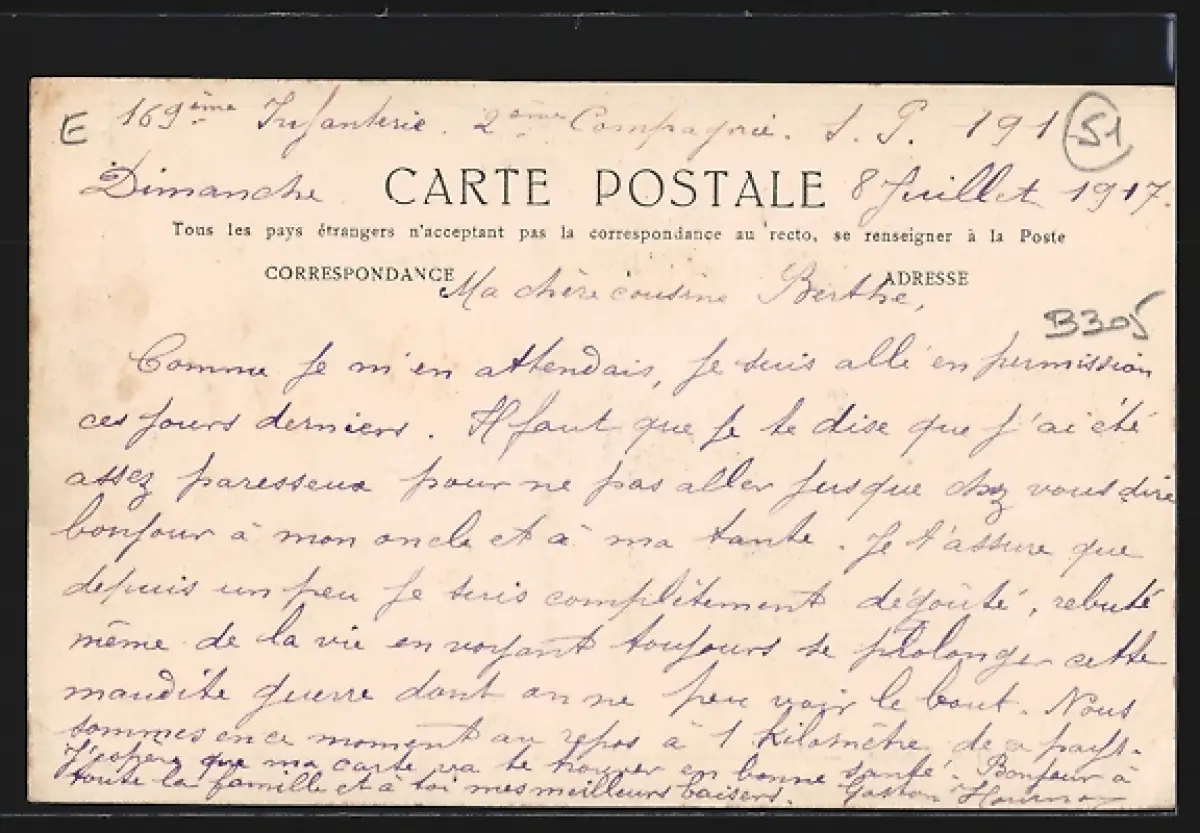 E 169ème Infanterie. 2ème Compagnie. S. P. 191 51
Dimanche CARTE POSTALE 8 Juillet 1917.
Tous les pays étrangers n'acceptant pas la correspondance au recto, se renseigner à la Poste
CORRESPONDANCE ADRESSE
Ma chère cousine Berthe,
B305
Comme je m'en attendais, je suis allé en permission
ces jours derniers. Il faut que je te dise que j'ai été
assez paresseux pour ne pas aller jusque chez vous dire
bonjour à mon oncle et à ma tante. Je t'assure que
depuis un peu je suis complètement dégoûté, rebuté
même de la vie en voyant toujours se prolonger cette
maudite guerre dont on ne peu voir le bout. Nous
sommes en ce moment au repos à 1 kilomètre de pays.
J'espère que ma carte va te trouver en bonne santé. Bonjour à
toute la famille et à toi mes meilleurs baisers. Gaston